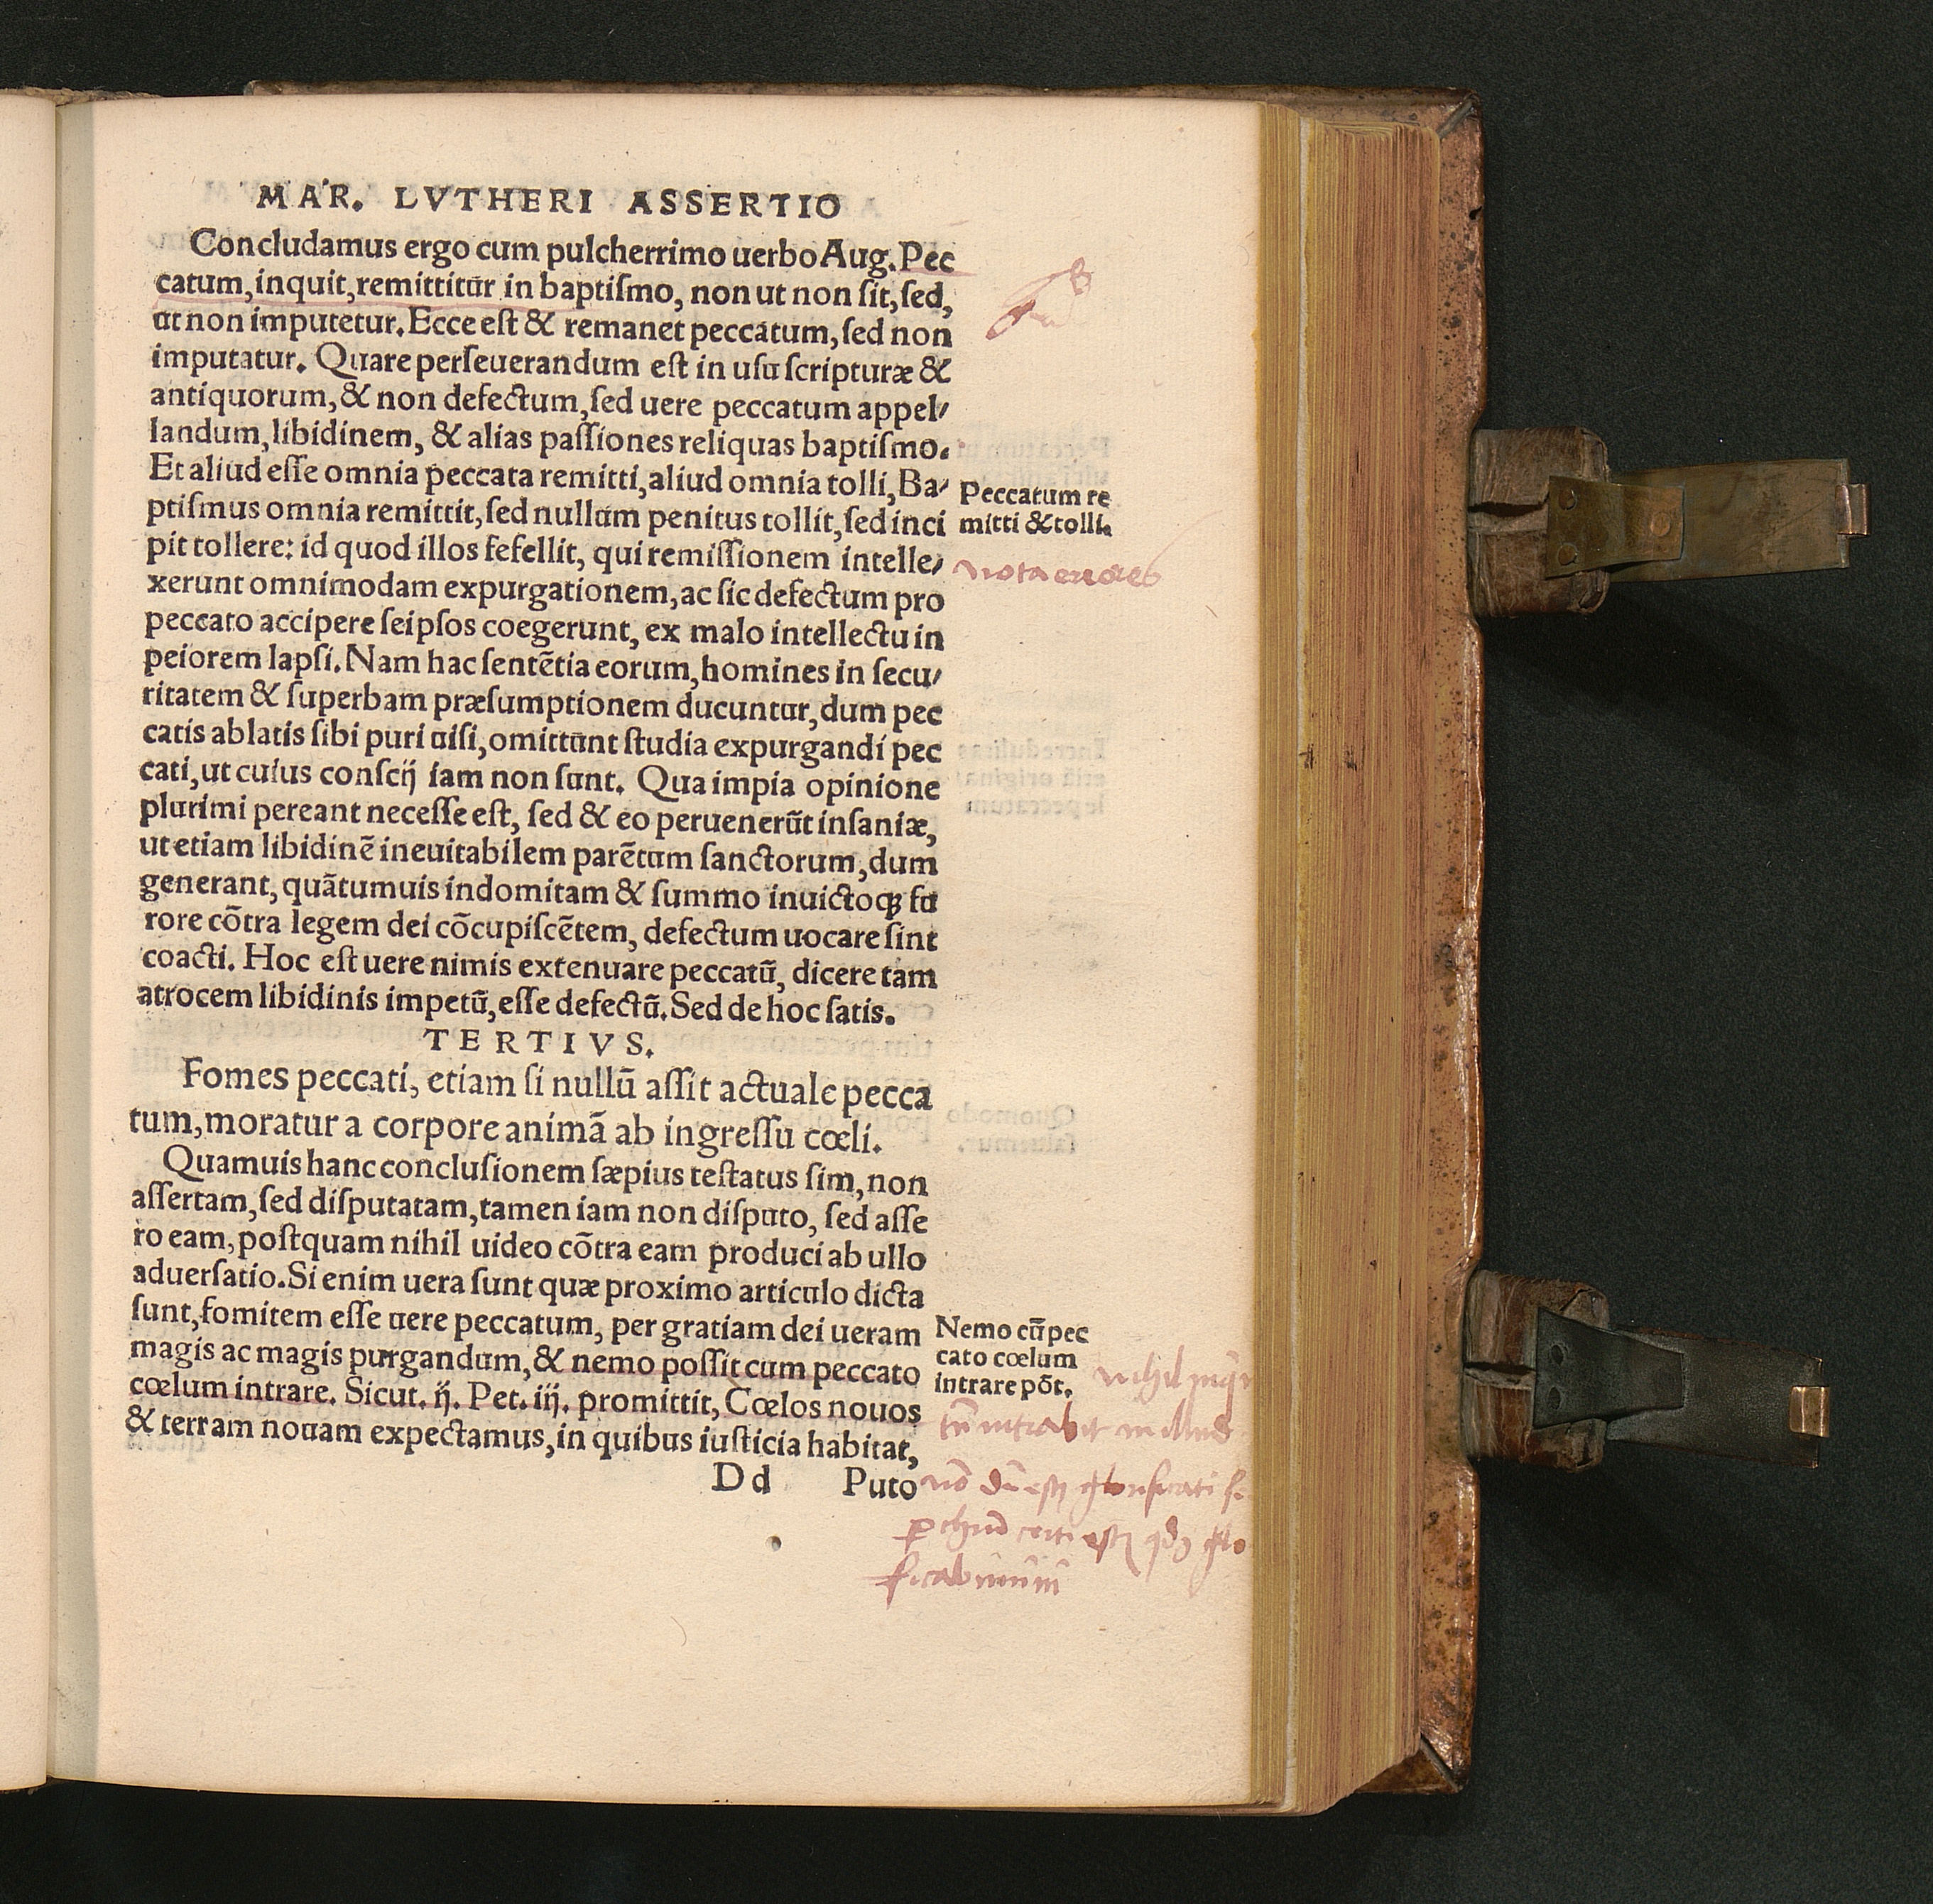 MAR. LVTHERI ASSERTIO
Concludamus ergo cum pulcherrimo uerbo Aug. Pec
catum, inquit, remittitur in baptiſmo, non ut non ſit, ſed,
ut non imputetur. Ecce eſt & remanet peccatum, ſed non
imputatur. Quare perſeuerandum eſt in uſu ſcripturæ &
antiquorum, & non defectum, ſed uere peccatum appel⸗
landum, libidinem, & alias paſſiones reliquas baptiſmo.
Et aliud eſſe omnia peccata remitti, aliud omnia tolli, Ba⸗
ptiſmus omnia remittit, ſed nullum penitus tollit, ſed inci
pit tollere: id quod illos fefellit, qui remiſſionem intelle⸗
xerunt omnimodam expurgationem, ac ſic defectum pro
peccato accipere ſeipſos coegerunt, ex malo intellectu in
peiorem lapſi. Nam hac ſentētia eorum, homines in ſecu⸗
ritatem & ſuperbam præſumptionem ducuntur, dum pec
catis ablatis ſibi puri uiſi, omittunt ſtudia expurgandi pec
cati, ut cuius conſcij iam non ſunt. Qua impia opinione
plurimi pereant neceſſe eſt, ſed & eo peruenerūt inſaniæ,
ut etiam libidinē ineuitabilem parētum ſanctorum, dum
generant, quātumuis indomitam & ſummo inuictoq; fu
rore cōtra legem dei cōcupiſcētem, defectum uocare ſint
coacti. Hoc eſt uere nimis extenuare peccatū, dicere tam
atrocem libidinis impetū, eſſe defectū. Sed de hoc ſatis.
Peccatum re
mitti & tolli.
nota errores
TERTIVS.
Fomes peccati, etiam ſi nullū aſſit actuale pecca
tum, moratur a corpore animā ab ingreſſu cœli.
Quamuis hanc concluſionem ſæpius teſtatus ſim, non
aſſertam, ſed diſputatam, tamen iam non diſputo, ſed aſſe
ro eam, poſtquam nihil uideo cōtra eam produci ab ullo
aduerſatio. Si enim uera ſunt quæ proximo articulo dicta
ſunt, fomitem eſſe uere peccatum, per gratiam dei ueram
magis ac magis purgandum, & nemo poſſit cum peccato
cœlum intrare. Sicut. ij. Pet. iij. promittit, Cœlos nouos
& terram nouam expectamus, in quibus iuſticia habitat,
Nemo cū pec
cato cœlum
intrare pōt.
nihil
intrabit in illud
Dd Puto